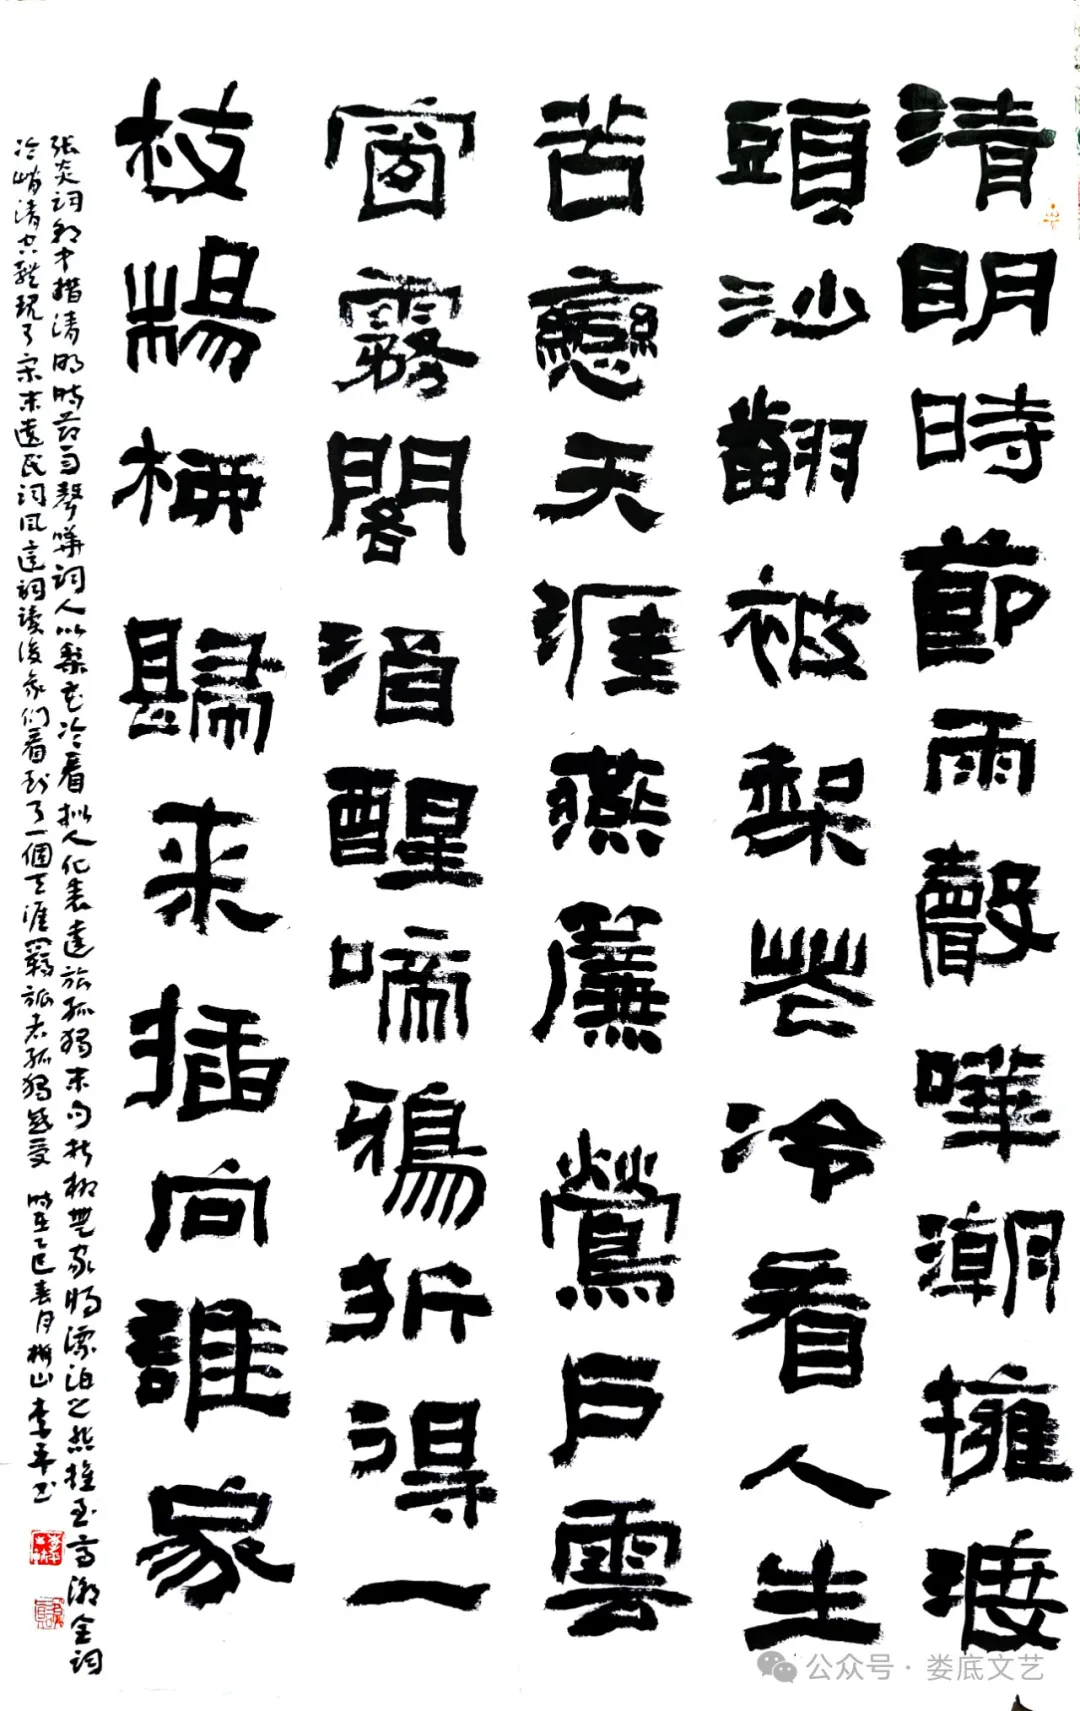 清明時節雨聲嘩潮擁渡
頭沙翻被梨花冷看人生
苦戀天涯燕簾鶯戶雲
窗霧閣酒醒啼鴉折得一
枝楊柳歸來插向誰家
張炎詞郎中措清明時節雨聲嘩詞人以梨花冷看擬人化表達旅孤獨末句折柳無家將漂泊之愁推至高潮全詞
冷峭清空體現了宋末遺民詞風這詞讀後我們看到了一個天涯羈旅者孤獨感受 時在乙巳春月梅山李平書
公众号·娄底文艺